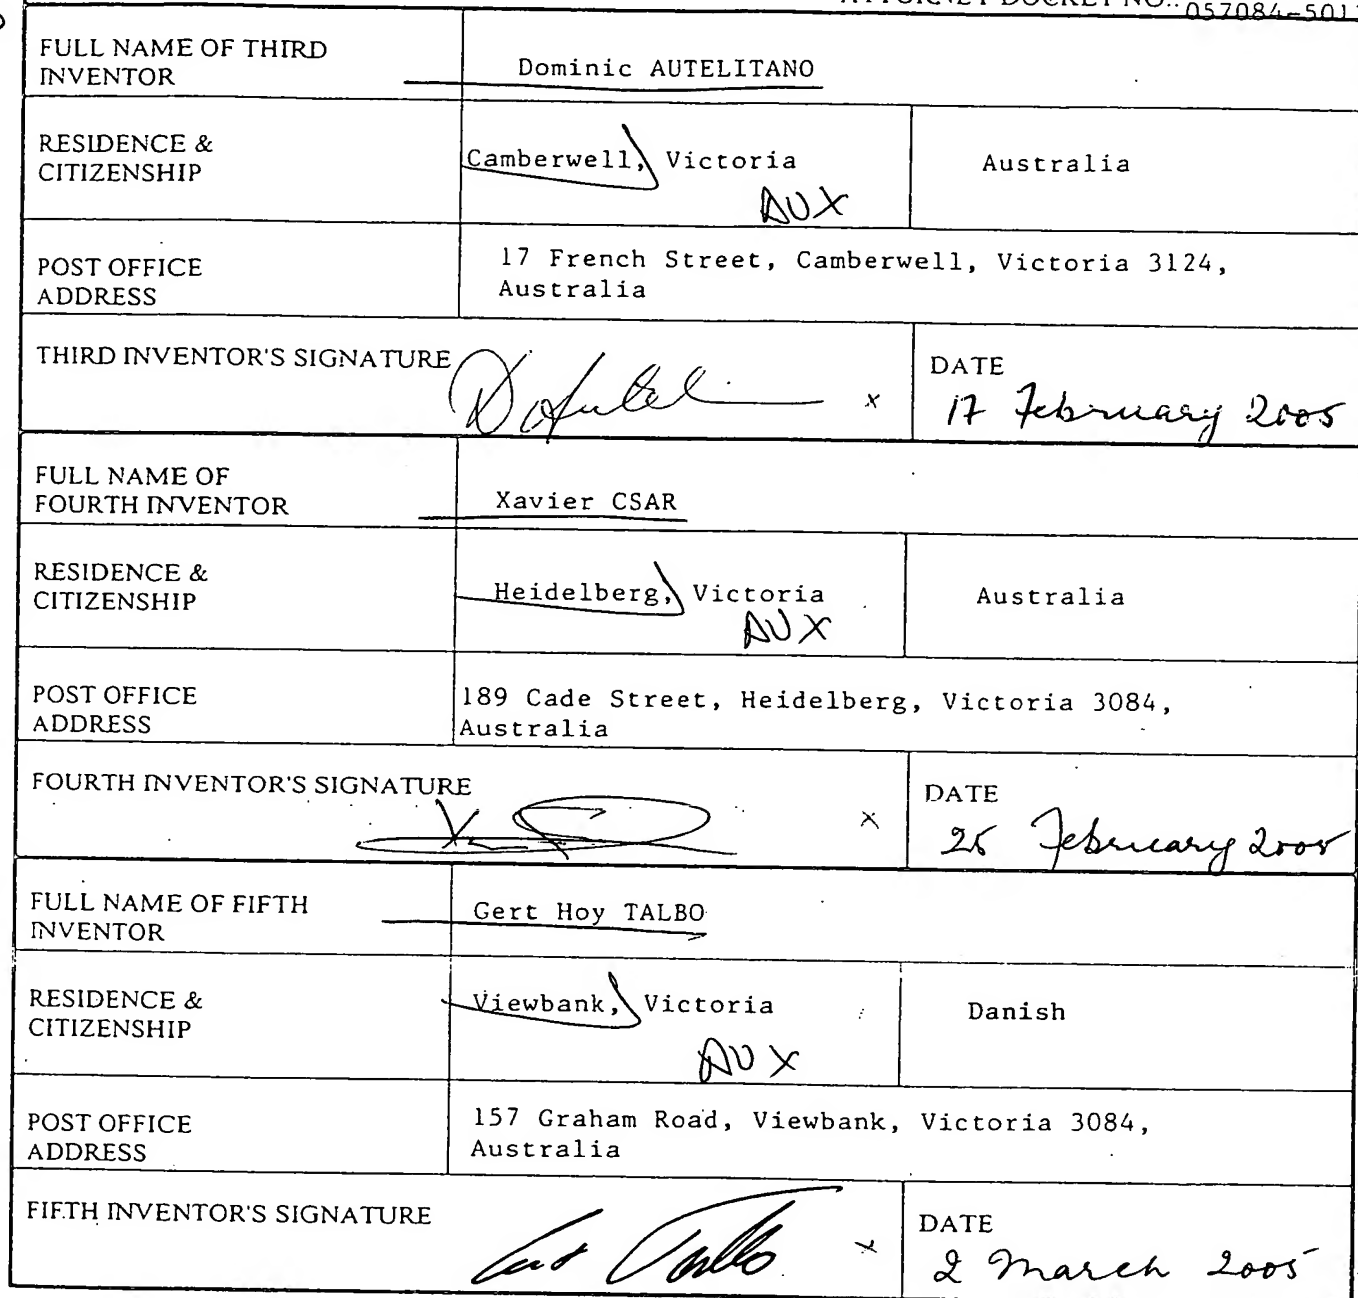 ATTORNEY DOCKET NO.: 057084-501
FULL NAME OF THIRD
INVENTOR
Dominic AUTELITANO
RESIDENCE &
CITIZENSHIP
Camberwell, Victoria
AUX
Australia
POST OFFICE
ADDRESS
17 French Street, Camberwell, Victoria 3124,
Australia
THIRD INVENTOR'S SIGNATURE
x
DATE
17 February 2005
FULL NAME OF
FOURTH INVENTOR
Xavier CSAR
RESIDENCE &
CITIZENSHIP
Heidelberg, Victoria
AUX
Australia
POST OFFICE
ADDRESS
189 Cade Street, Heidelberg, Victoria 3084,
Australia
FOURTH INVENTOR'S SIGNATURE
x
DATE
25 February 2005
FULL NAME OF FIFTH
INVENTOR
Gert Hoy TALBO
RESIDENCE &
CITIZENSHIP
Viewbank, Victoria
AUX
Danish
POST OFFICE
ADDRESS
157 Graham Road, Viewbank, Victoria 3084,
Australia
FIFTH INVENTOR'S SIGNATURE
x
DATE
2 March 2005